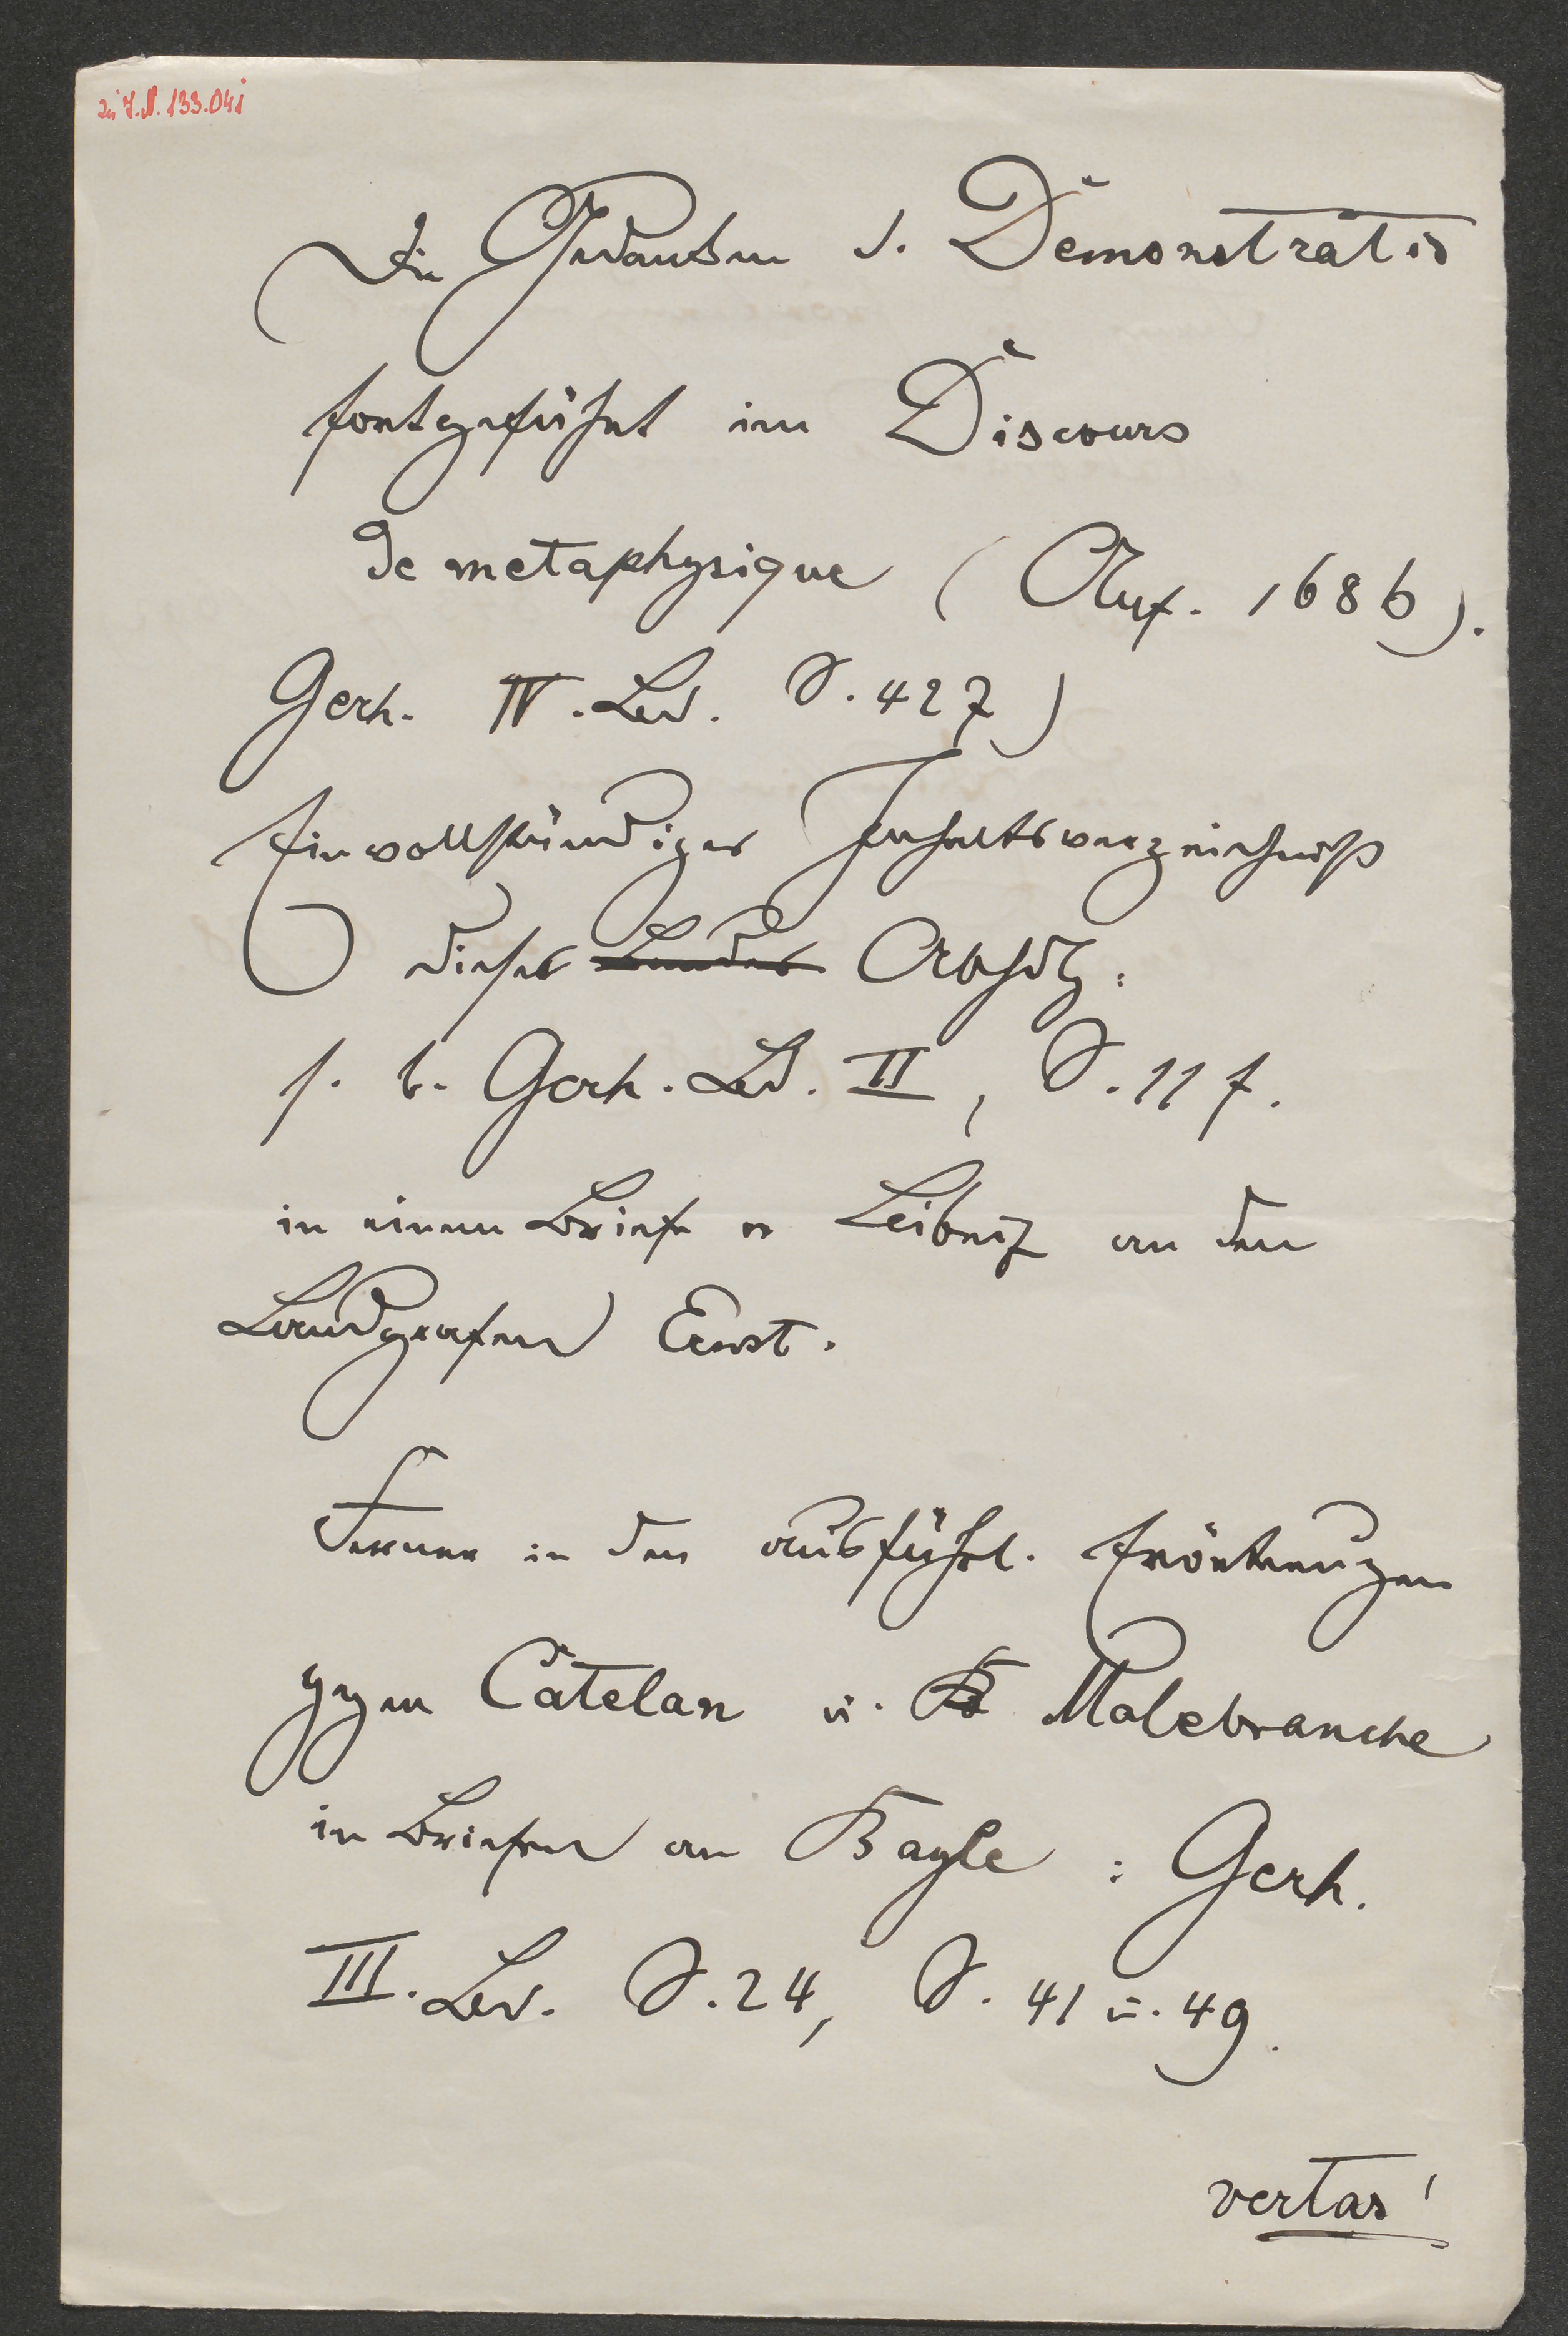 zu I.N. 133.041
Die Gedanken d. Demonstratio
fortgeführt im Discours
de metaphysique (Anf. 1686).
Gerh. IV. Bd. S. 427)
Ein vollständiges Inhaltsverzeichniß
dieses Bandes Abhdlg:
s. b. Gerh. Bd. II, S. 11 f.
in einem Briefe v Leibniz an den
Landgrafen Ernst.
Ferner in den ausführl. Erörterungen
gegen Catelan u. Malebranche
in Briefen an Bayle : Gerh.
III. Bd. S. 24, S. 41 u. 49.
vertas!